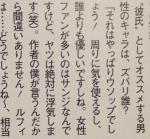 "彼氏"としてオススメする男
性のキャラは、ズバリ誰？
「それはやっぱりチョッパーで
しょう！ 周りに気を使えるし、
誰よりも優しいですしね。女性
ファンが多いのはサンジなんで
すけど、ヤツは絶対に浮気しま
す（笑）。作者の僕が言うんだか
ら間違いありません！ ルフィ
は……どうでしょうねー、相当